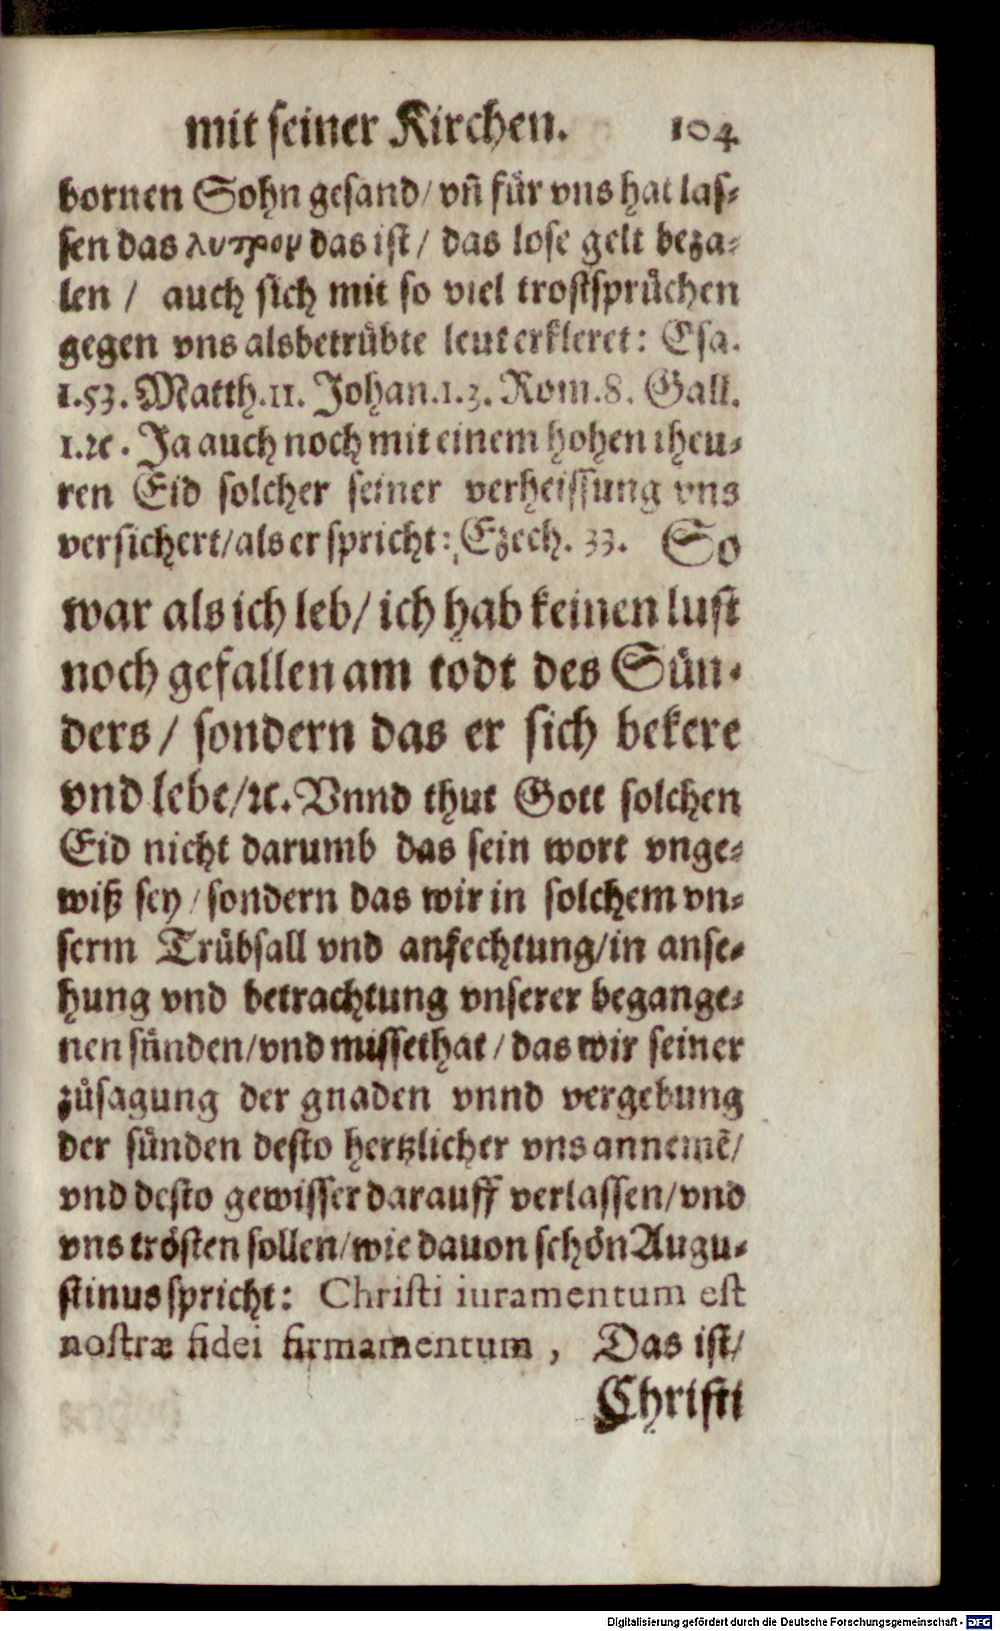 mit seiner Kirchen. 104
bornen Sohn gesand/ vñ für vns hat las⸗
sen das λυτρον das ist/ das lose gelt beza⸗
len / auch sich mit so viel trostsprüchen
gegen vns alsbetrübte leut erkleret: Esa.
1.53. Matth.11. Johan.1.3. Rom.8. Gall.
1.ꝛc. Ja auch noch mit einem hohen theu⸗
ren Eid solcher seiner verheissung vns
versichert/als er spricht: Ezech. 33. So
war als ich leb/ ich hab keinen lust
noch gefallen am todt des Sün⸗
ders/ sondern das er sich bekere
vnd lebe/ꝛc. Vnnd thut Gott solchen
Eid nicht darumb das sein wort vnge⸗
wiß sey/ sondern das wir in solchem vn⸗
serm Trübsall vnd anfechtung/in anse⸗
hung vnd betrachtung vnserer begange⸗
nen sünden/vnd missethat/ das wir seiner
zůsagung der gnaden vnnd vergebung
der sünden desto hertzlicher vns annemẽ/
vnd desto gewisser darauff verlassen/vnd
vns trösten sollen/wie dauon schön Augu⸗
stinus spricht: Christi iuramentum est
nostræ fidei firmamentum, Das ist/
Christi
Digitalisierung gefördert durch die Deutsche Forschungsgemeinschaft - DFG